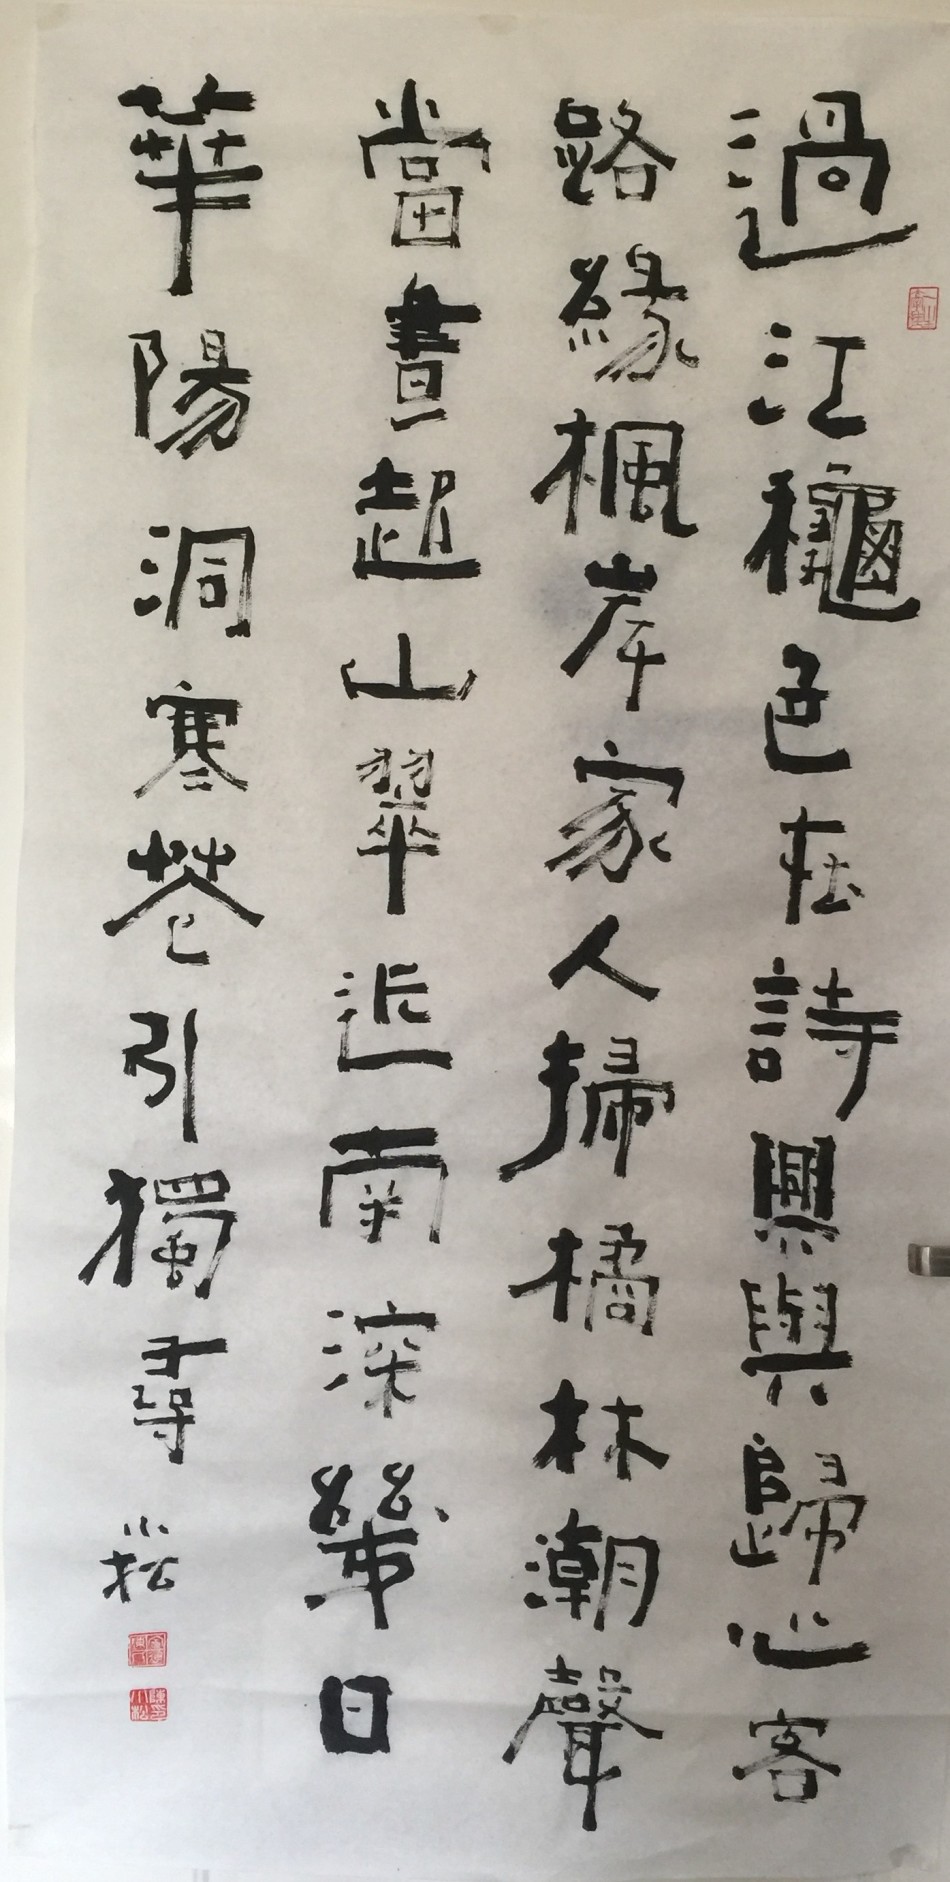 過江龝色在詩興與歸心客
路緣楓岸家人掃橘林潮聲
當晝起山翠近南深幾日
華陽洞寒花引獨尋
小松